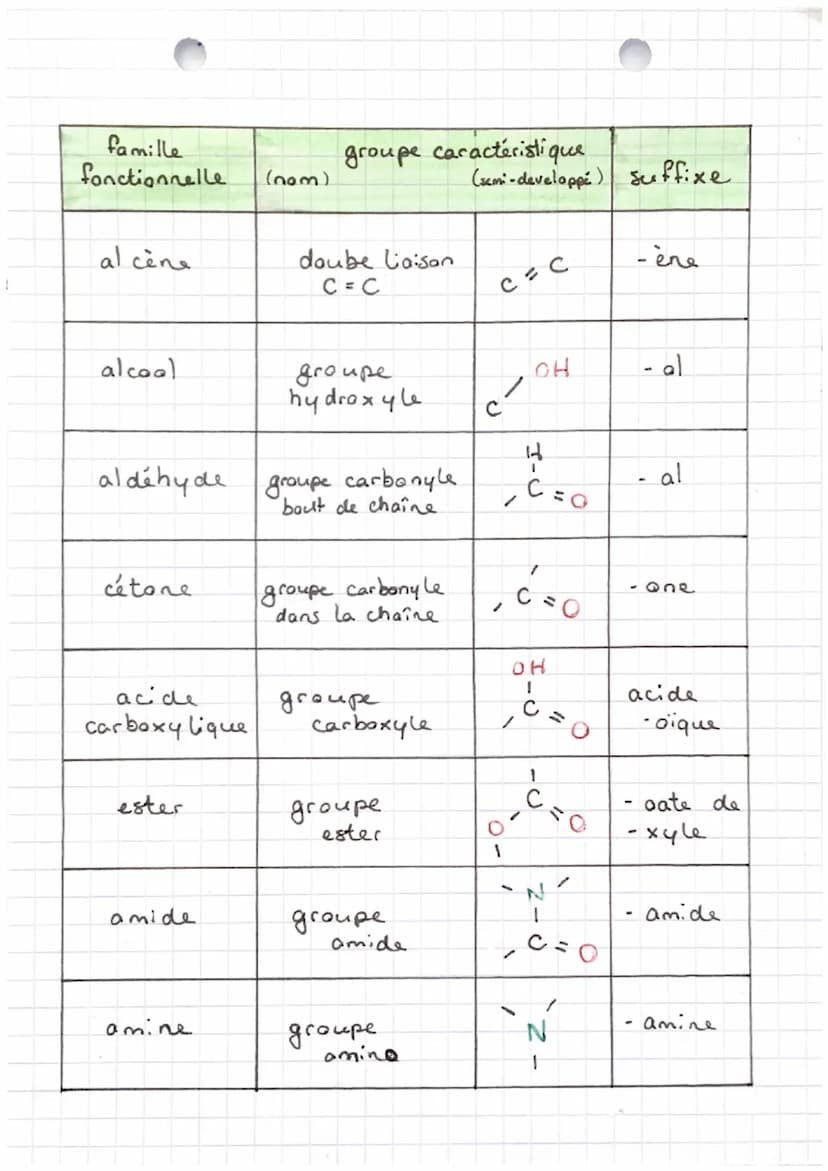 famille
fonctionnelle
groupe caractéristique
(nom) (semi-developpé)
suffixe
alcène
doube liaison
C = C
C = C
- ène
alcool
groupe
hydroxyle
C / OH
- ol
aldéhyde
groupe carbonyle
bout de chaîne
H
C = O
- al
cétone
groupe carbonyle
dans la chaîne
C = O
- one
acide
carboxylique
groupe
carboxyle
OH
C = O
acide
- oïque
ester
groupe
ester
C
O = O
- oate de
- xyle
amide
groupe
amide
N
C = O
- amide
amine
groupe
amino
N
- amine